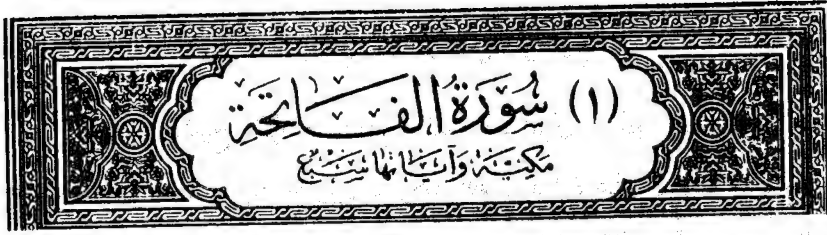 (١) سُورَةُ الفَاتِحَةِ
مَكِيَّة وَآيَاتُهَا سَبْعٌ